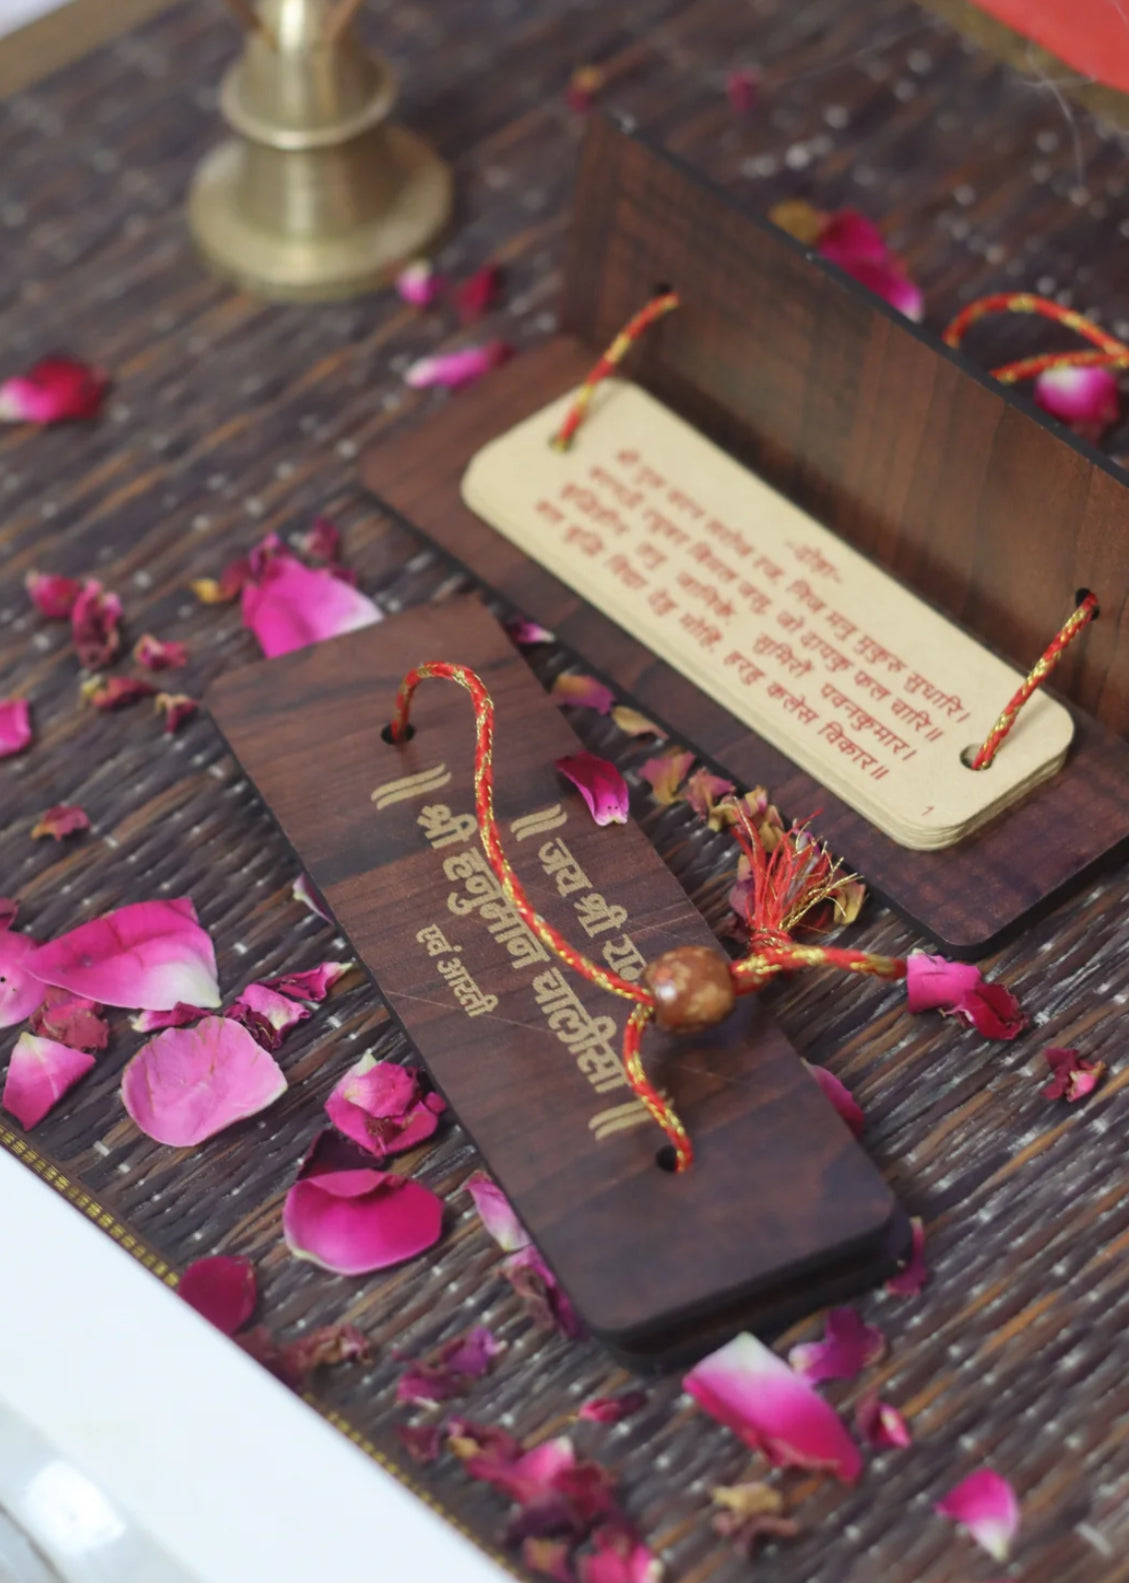 ॥ जय श्री
॥ श्री हनुमान चालीसा ॥
एवं आरती
-दोहा-
श्री गुरु चरन सरोज रज, निज मनु मुकुरु सुधारि।
बरनउँ रघुबर बिमल जसु, जो दायकु फल चारि॥
बुद्धिहीन तनु जानिके, सुमिरौं पवनकुमार।
बल बुद्धि विद्या देहु मोहि, हरहु कलेस विकार॥
1